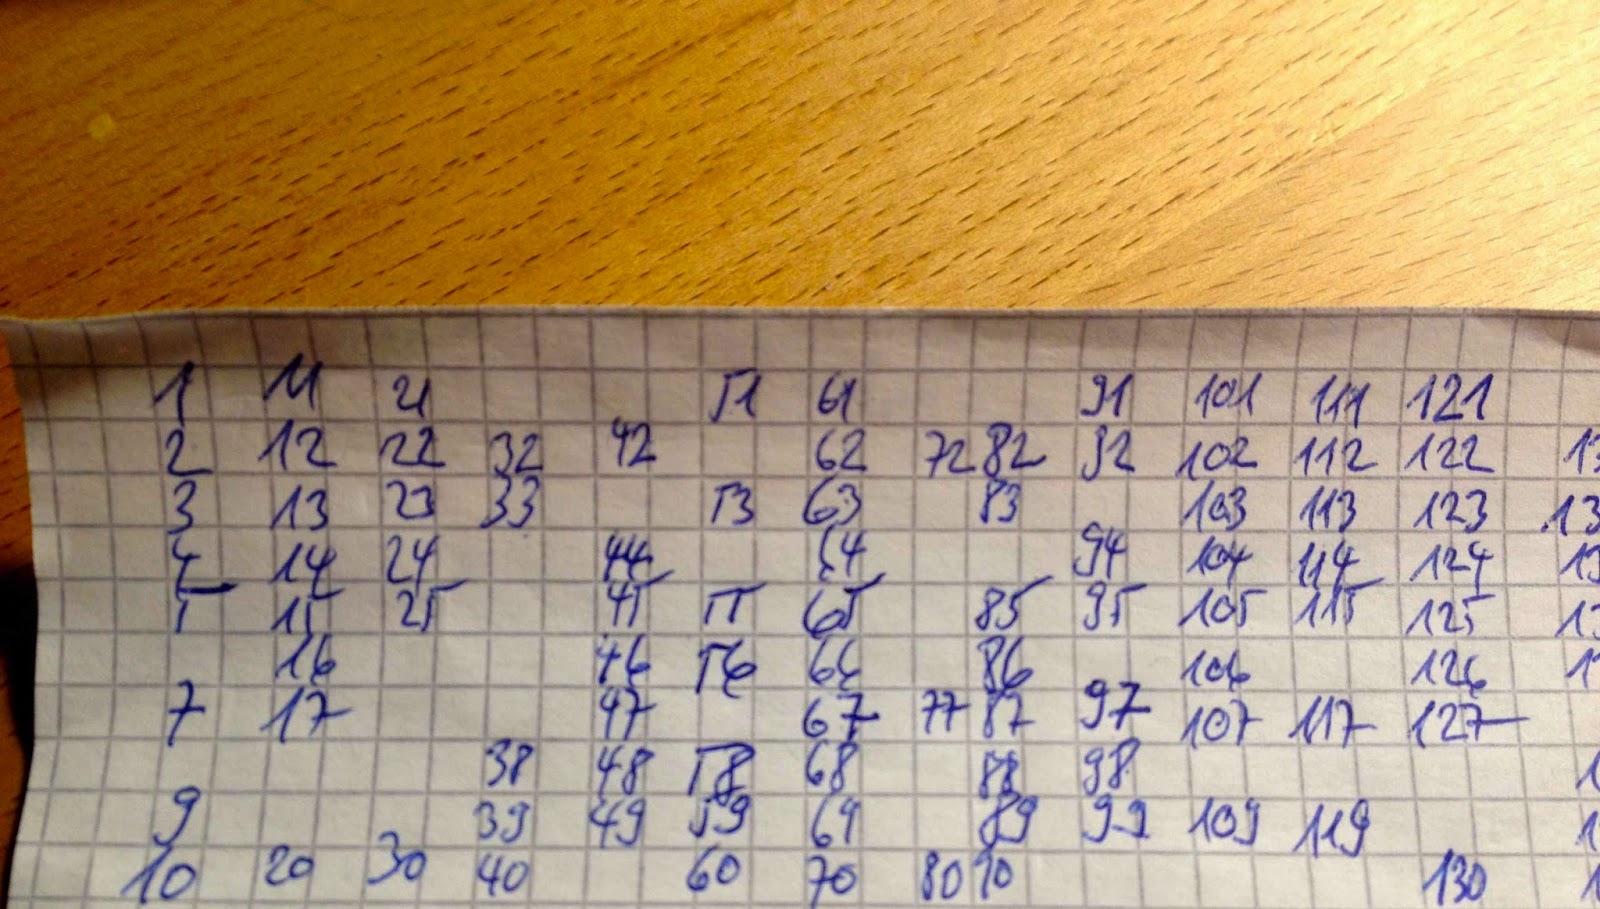 1 11 21 51 61 91 101 111 121
2 12 22 32 42 62 72 82 92 102 112 122
3 13 23 33 53 63 83 103 113 123
4 14 24 44 64 94 104 114 124
5 15 25 45 55 65 85 95 105 115 125
16 46 56 66 86 106 126
7 17 47 67 77 87 97 107 117 127
38 48 58 68 88 98
9 39 49 59 69 89 99 109 119
10 20 30 40 60 70 80 90 130